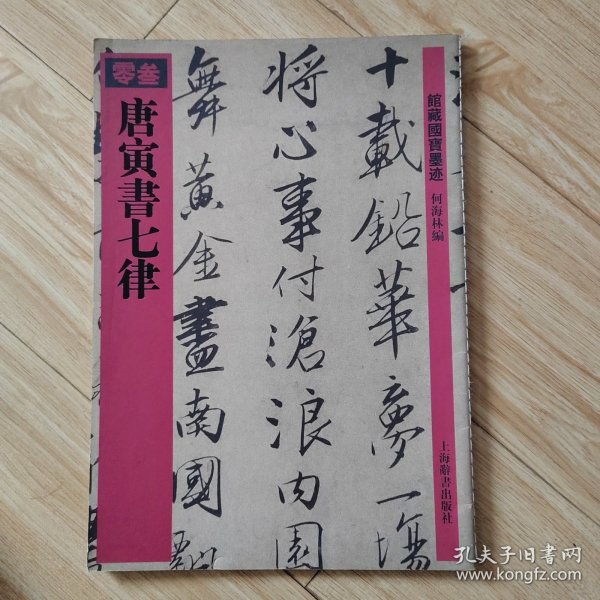 館藏國寶墨迹
何海林編
上海辭書出版社
十載鉛華夢一場
將心事付滄浪内園
舞黃金畫南國
零叁
唐寅書七律
孔夫子旧书网
www.kongfz.com